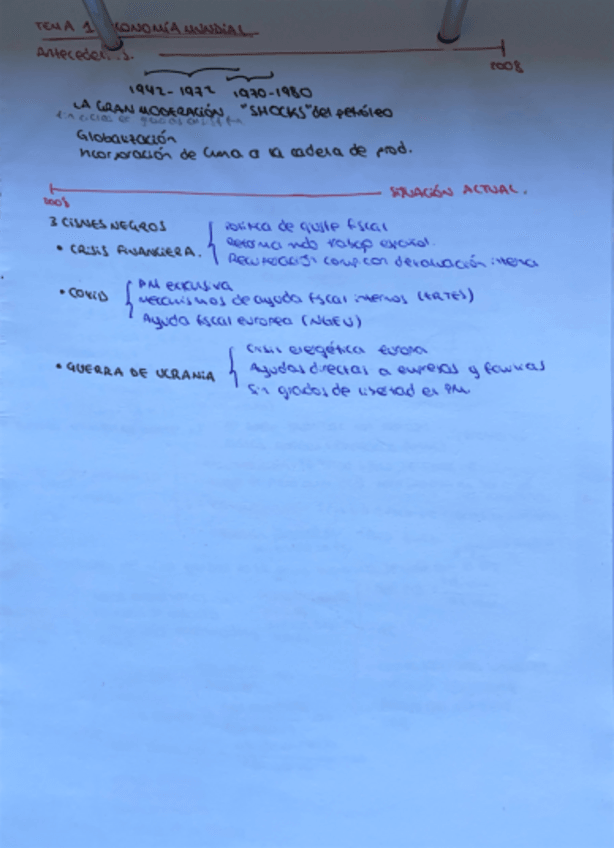 TEMA 1 ECONOMÍA MUNDIAL
Antecedentes.
2008
1942-1972 1970-1980
LA GRAN MODERACIÓN "SHOCKS" del petróleo
Globalización
Incorporación de China a la cadena de prod.
2008 SITUACIÓN ACTUAL.
3 CISNES NEGROS
Política de ajuste fiscal
• CRISIS FINANCIERA.
Reforma mdo trabajo
Recuperación comp con devaluación interna
• COVID
PM expansiva
Mecanismos de ayuda fiscal internos (ERTES)
Ayuda fiscal europea (NGEU)
• GUERRA DE UCRANIA
Crisis energética europa
Ayudas directas a empresas y familias
Sin grados de libertad en PM